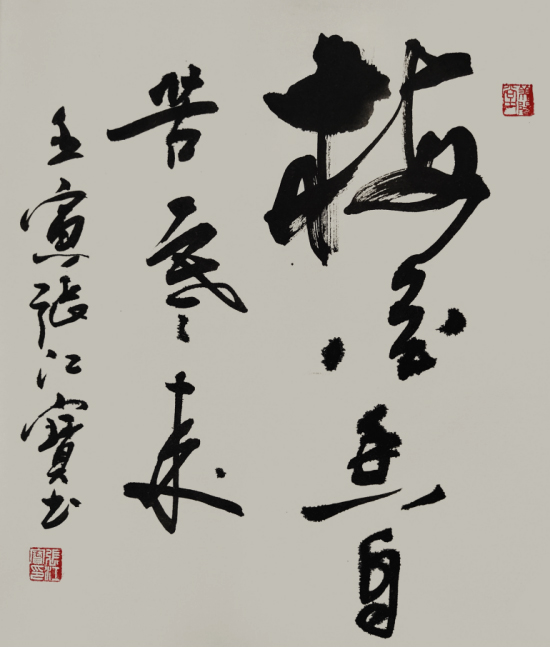 梅花香自
苦寒来
壬寅張江寶书
張江寶印